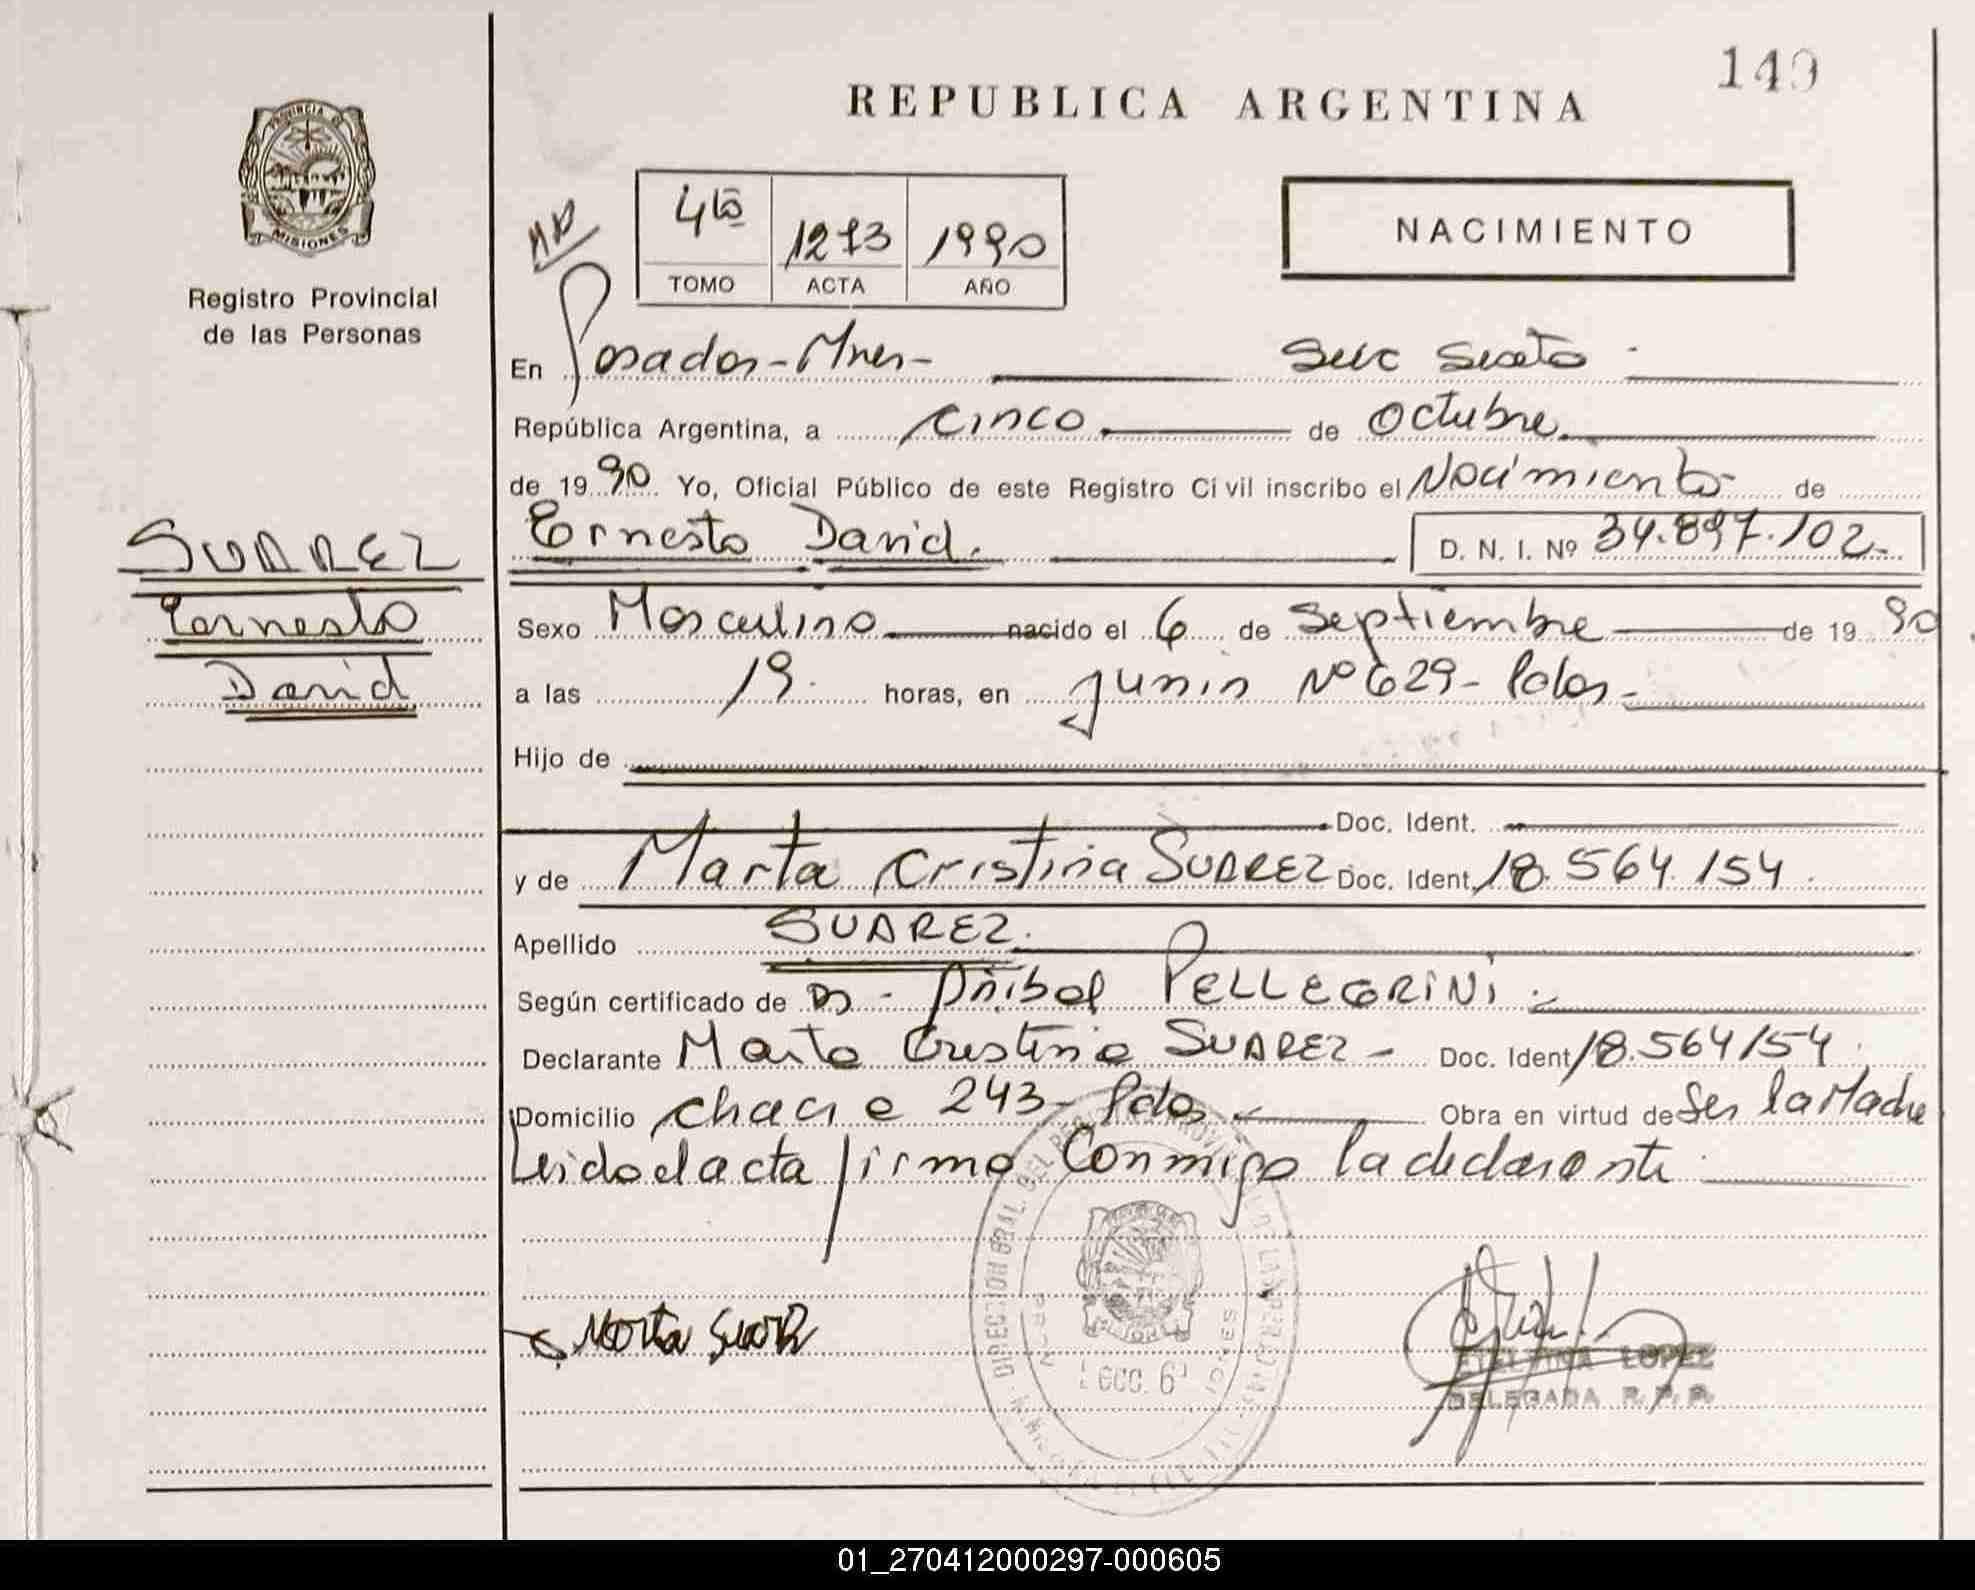 149
REPUBLICA ARGENTINA
PROVINCIA DE
MISIONES
Registro Provincial
de las Personas
NACIMIENTO
4to 1273 1990
TOMO ACTA AÑO
En Posadas-Mnes- Secc Sexta
República Argentina, a cinco de octubre
de 1990 Yo, Oficial Público de este Registro Civil inscribo el Nacimiento de
Ernesto David. D. N. I. Nº 34.897.102-
SUAREZ
Ernesto
David
Sexo Masculino nacido el 6 de Septiembre de 1990
a las 19. horas, en Junin Nº 629- Pdas-
Hijo de
Doc. Ident.
y de Marta Cristina SUAREZ Doc. Ident. 18.564.154.
Apellido SUAREZ.
Según certificado de Dr - Anibal PELLEGRINI
Declarante Marta Cristina SUAREZ- Doc. Ident 18.564154.
Domicilio chacra 243- Pdas Obra en virtud de Ser la Madre
Leido el acta firma Conmigo la declarante
Marta Suarez
LOPEZ
DELEGADA R. P. P.
01_270412000297-000605